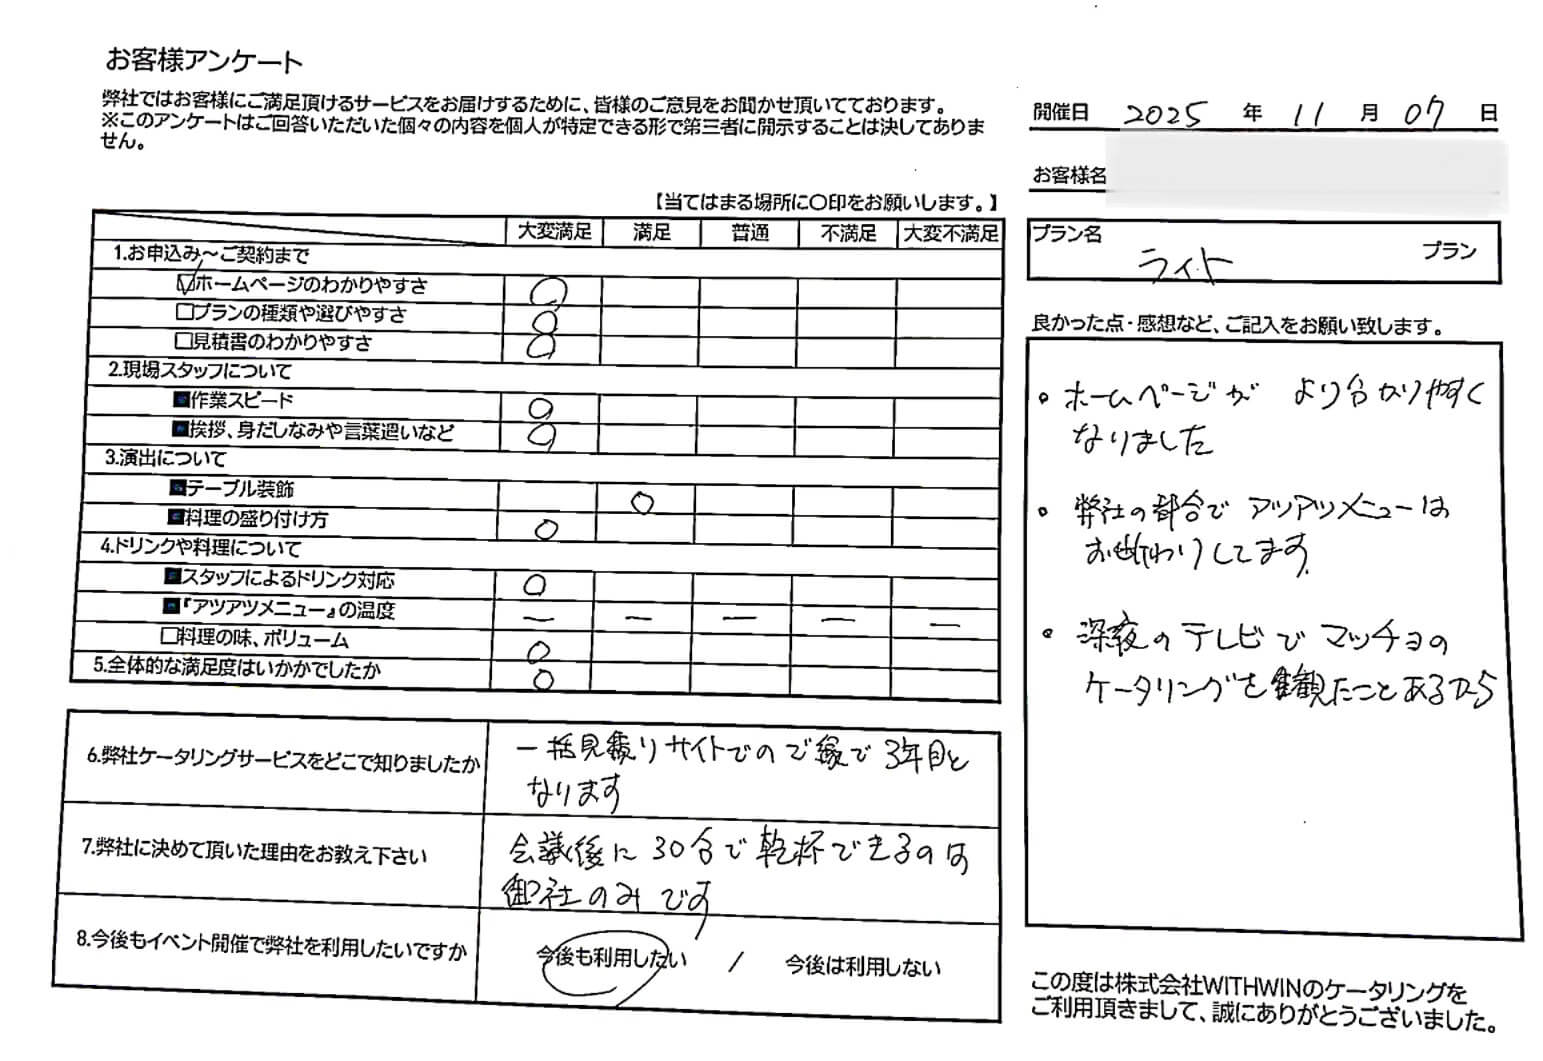 お客様アンケート
弊社ではお客様にご満足頂けるサービスをお届けするために、皆様のご意見をお聞かせ頂いてております。
※このアンケートはご回答いただいた個々の内容を個人が特定できる形で第三者に開示することは決してありま
せん。
開催日 2025 年 11 月 07 日
お客様名
【当てはまる場所に〇印をお願いします。】
プラン名
ライト プラン
大変満足 満足 普通 不満足 大変不満足
1.お申込み〜ご契約まで
☑ホームページのわかりやすさ ○
□プランの種類や選びやすさ ○
□見積書のわかりやすさ ○
2.現場スタッフについて
■作業スピード ○
■挨拶、身だしなみや言葉遣いなど ○
3.演出について
■テーブル装飾 ○
■料理の盛り付け方 ○
4.ドリンクや料理について
■スタッフによるドリンク対応 ○
■『アツアツメニュー』の温度 ー ー ー ー ー
□料理の味、ボリューム ○
5.全体的な満足度はいかかでしたか ○
6.弊社ケータリングサービスをどこで知りましたか
一括見積りサイトでのご縁で3年目と
なります
7.弊社に決めて頂いた理由をお教え下さい
会議後に30台で乾杯できるのは
御社のみです
8.今後もイベント開催で弊社を利用したいですか
今後も利用したい / 今後は利用しない
良かった点・感想など、ご記入をお願い致します。
・ホームページが より分かりやすく
なりました
・弊社の都合でアツアツメニューは
お断わりしてます。
・深夜のテレビでマッチョの
ケータリングを観たことあるから
この度は株式会社WITHWINのケータリングを
ご利用頂きまして、誠にありがとうございました。